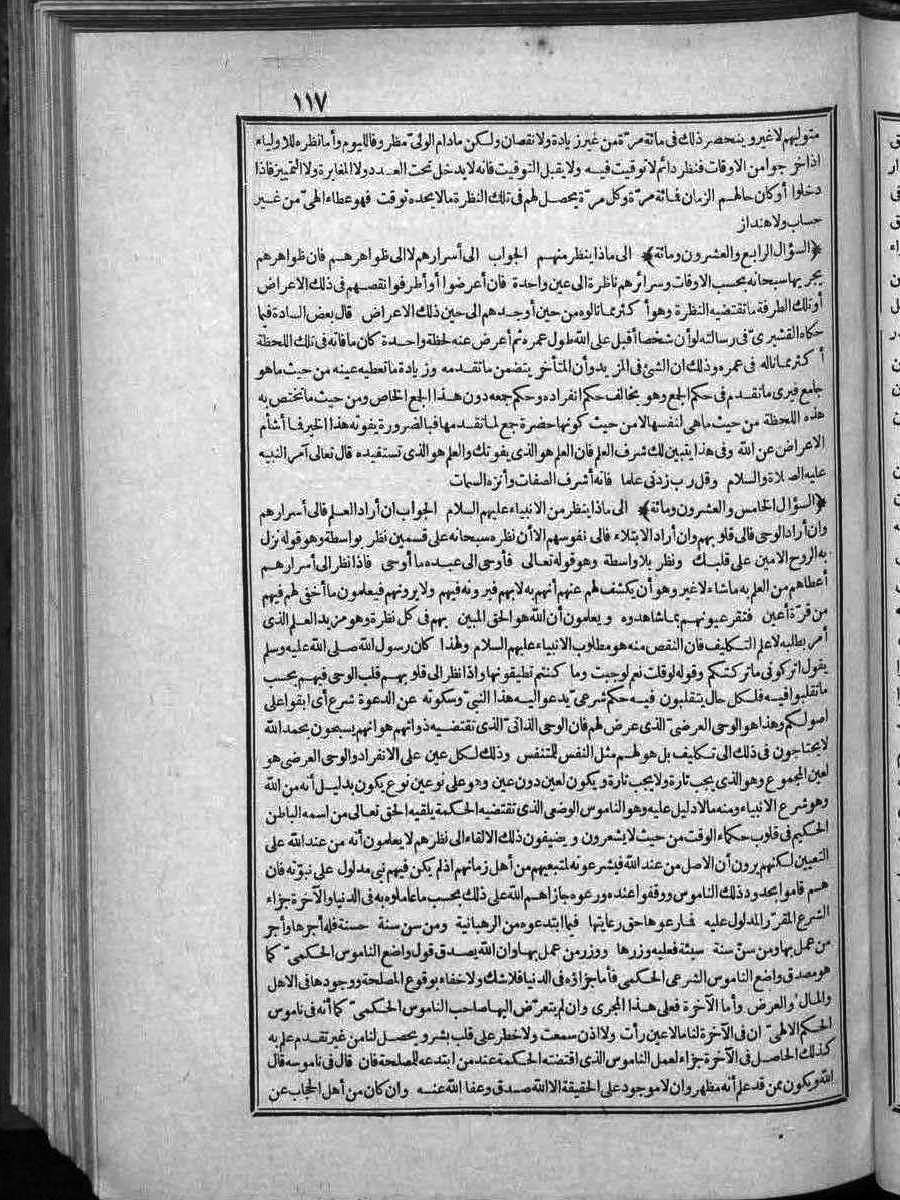 ١١٧
متوليهم لا غير وينحصر ذلك في مائة مرّة من غير زيادة ولا نقصان ولكن مادام الوليّ مظروفا لليوم وأما نظره للاولياء
اذا خرجوا من الاوقات فنظر دائم لا توقيت فيه ولا يقبل التوقيت فانه لا يدخل تحت العدد ولا المغايرة ولا التمييز فاذا
دخلوا أو كان حالهم الزمان فمائة مرّة وكل مرّة يحصل لهم في تلك النظرة مالا يحده توقت فهو عطاء الهيّ من غير
حساب ولا هنداز
﴿السؤال الرابع والعشرون ومائة﴾ الى ماذا ينظر منهم الجواب الى أسرارهم لا الى ظواهرهم فان ظواهرهم
يجريها سبحانه بحسب الاوقات وسرائرهم ناظرة الى عين واحدة فان أعرضوا أو أطرفوا نقصهم في ذلك الاعراض
أو تلك الطرفة ما تقتضيه النظرة وهو أكثر مما نالوه من حين أوجدهم الى حين ذلك الاعراض قال بعض السادة فيما
حكاه القشيريّ في رسالته لو أن شخصا أقبل على الله طول عمره ثم أعرض عنه لحظة واحدة كان ما فاته في تلك اللحظة
أكثر مما ناله في عمره وذلك ان الشئ في المزيد وأن المتأخر يتضمن ما تقدمه وزيادة ما تعطيه عينه من حيث ما هو
جامع فيرى ما تقدم في حكم الجمع وهو يخالف حكم انفراده وحكم جعه دون هذا الجع الخاص ومن حيث ما تختص به
هذه اللحظة من حيث ما هي لنفسها لا من حيث كونها حضرة جمع لما تقدمها فبالضرورة يفوته هذا الخير فما أشأم
الاعراض عن الله وفي هذا يتبين لك شرف العلم فان العلم هو الذي يفوتك والعلم هو الذي تستفيده قال تعالى آمر النبيه
عليه الصلاة والسلام وقل رب زدني علما فانه أشرف الصفات وأنزه السمات
﴿السؤال الخامس والعشرون ومائة﴾ الى ماذا ينظر من الانبياء عليهم السلام الجواب ان أراد العلم فالى أسرارهم
وان أراد الوحي فالى قلوبهم وان أراد الابتلاء فالى نفوسهم الا أن نظره سبحانه على قسمين نظر بواسطة وهو قوله نزل
به الروح الامين على قلبك ونظر بلا واسطة وهو قوله تعالى فأوحى الى عبده ما أوحى فاذا نظر الى أسرارهم
أعطاهم من العلم به ما شاء لا غير وهو أن يكشف لهم عنهم أنهم به لا بهم فيرونه فيهم ولا يرونهم فيعلمون ما أخفى لهم فيهم
من قرّة أعين فتقر عيونهم بما شاهدوه ويعلمون أن الله هو الحق المبين بهم في كل نظرة وهو مزيد العلم الذي
أمر بطلبه لا علم التكليف فان النقص منه هو مطلوب الانبياء عليهم السلام ولهذا كان رسول الله صلى الله عليه وسلم
يقول اتركوني ما تركتكم وقوله لو قلت نعم لوجبت وما كنتم تطيقونها واذا نظر الى قلوبهم قلب الوحي فيهم بحسب
ما تقلبوا فيه فلكل حال يتقلبون فيه حكم شرعيّ يدعو اليه هذا النبيّ وسكوته عن الدعوة شرع أي ابقوا على
اصولكم وهذا هو الوحي العرضيّ الذي عرض لهم فان الوحي الذاتيّ الذي تقتضيه ذواتهم هو انهم يسبحون بحمد الله
لا يحتاجون في ذلك الى تكليف بل هو لهم مثل النفس للمتنفس وذلك لكل عين على الانفراد والوحي العرضي هو
لعين المجموع وهو الذي يجب تارة ولا يجب تارة ويكون لعين دون عين وهو على نوعين نوع يكون بدليل أنه من الله
وهو شرع الانبياء ومنه مالا دليل عليه وهو الناموس الوضعي الذي تقتضيه الحكمة يلقيه الحق تعالى من اسمه الباطن
الحكيم في قلوب حكماء الوقت من حيث لا يشعرون ويضيفون ذلك الالقاء الى نظرهم لا يعلمون أنه من عند الله على
التعيين لكنهم يرون أن الاصل من عند الله فيشرعونه لمتبعيهم من أهل زمانهم اذ لم يكن فيهم نبي مدلول على نبوّته فان
هم قاموا بحدود ذلك الناموس ووقفوا عنده ورعوه جازاهم الله على ذلك بحسب ما عاملوه به في الدنيا والآخرة جزاء
الشرع المقرّر المدلول عليه فما رعوها حق رعايتها فيما ابتدعوه من الرهبانية ومن سن سنة حسنة فله أجرها وأجر
من عمل بها ومن سنّ سنة سيئة فعليه وزرها ووزر من عمل بها وان الله يصدق قول واضع الناموس الحكميّ كما
هو مصدق واضع الناموس الشرعي الحكمي فأما جزاؤه في الدنيا فلا شك ولا خفاء بوقوع المصلحة ووجودها في الاهل
والمال والعرض وأما الآخرة فعلى هذا المجرى وان لم يتعرّض اليها صاحب الناموس الحكميّ كما أنه في ناموس
الحكم الالهيّ ان في الآخرة لنا مالا عين رأت ولا اذن سمعت ولا خطر على قلب بشر ويحصل لنا من غير تقدم علم به
كذلك الحاصل في الآخرة جزاء لعمل الناموس الذي اقتضته الحكمة عند من ابتدعه للمصلحة فان قال في ناموسه قال
الله ويكون ممن قد علم أنه مظهر وان لا موجود على الحقيقة الا الله صدق وعفا الله عنه وان كان من أهل الحجاب عن